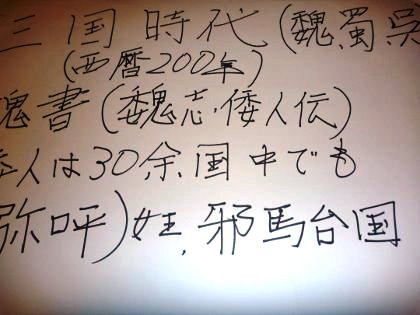 三国時代(魏蜀呉
(西暦200年)
魏書(魏志・倭人伝)
倭人は30余国中でも
弥呼)女王,邪馬台国